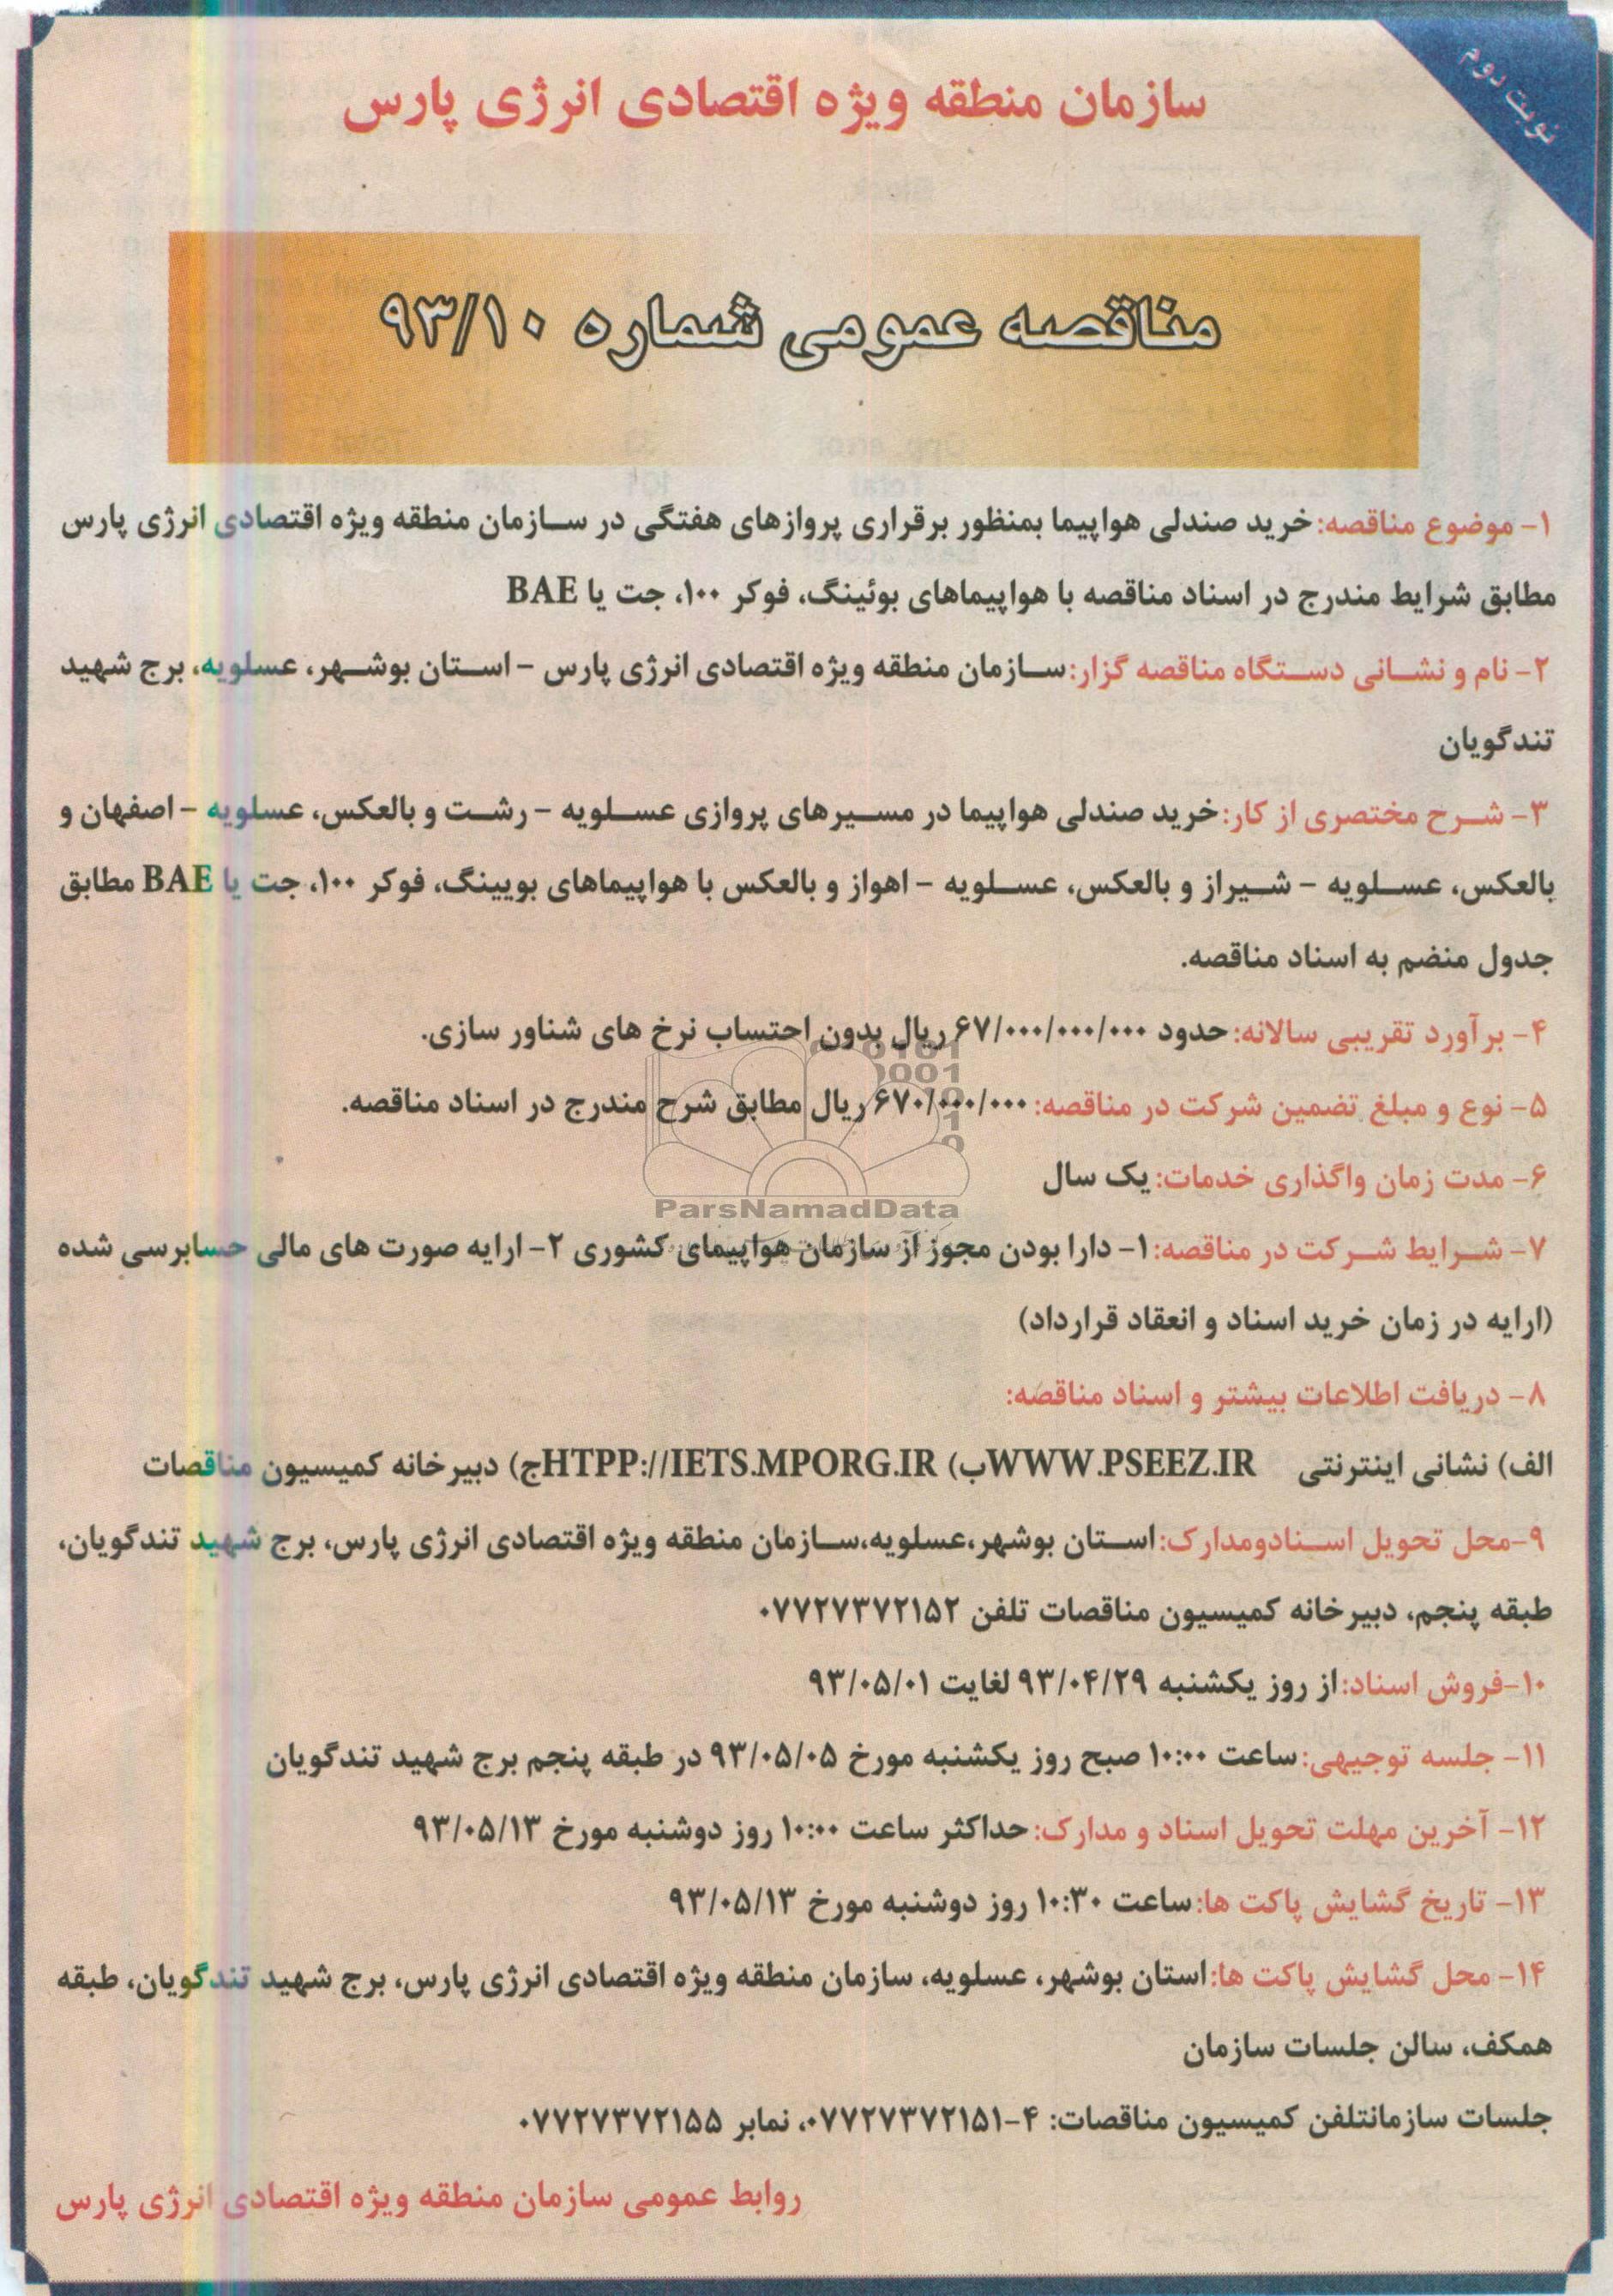 نوبت دوم
سازمان منطقه ویژه اقتصادی انرژی پارس
مناقصه عمومی شماره ۹۳/۱۰
۱- موضوع مناقصه: خرید صندلی هواپیما بمنظور برقراری پروازهای هفتگی در سازمان منطقه ویژه اقتصادی انرژی پارس
مطابق شرایط مندرج در اسناد مناقصه با هواپیماهای بوئینگ، فوکر ۱۰۰، جت یا BAE
۲- نام و نشانی دستگاه مناقصه گزار: سازمان منطقه ویژه اقتصادی انرژی پارس - استان بوشهر، عسلویه، برج شهید
تندگویان
۳- شرح مختصری از کار: خرید صندلی هواپیما در مسیرهای پروازی عسلویه - رشت و بالعکس، عسلویه - اصفهان و
بالعکس، عسلویه - شیراز و بالعکس، عسلویه - اهواز و بالعکس با هواپیماهای بویینگ، فوکر ۱۰۰، جت یا BAE مطابق
جدول منضم به اسناد مناقصه.
۴- برآورد تقریبی سالانه: حدود ۶۷/۰۰۰/۰۰۰/۰۰۰ ریال بدون احتساب نرخ های شناور سازی.
۵- نوع و مبلغ تضمین شرکت در مناقصه: ۶۷۰/۰۰۰/۰۰۰ ریال مطابق شرح مندرج در اسناد مناقصه.
۶- مدت زمان واگذاری خدمات: یک سال
ParsNamadData
۷- شرایط شرکت در مناقصه: ۱- دارا بودن مجوز از سازمان هواپیمای کشوری ۲- ارایه صورت های مالی حسابرسی شده
(ارایه در زمان خرید اسناد و انعقاد قرارداد)
۸- دریافت اطلاعات بیشتر و اسناد مناقصه:
الف) نشانی اینترنتی WWW.PSEEZ.IR ب) HTPP://IETS.MPORG.IR ج) دبیرخانه کمیسیون مناقصات
۹-محل تحویل اسنادومدارک: استان بوشهر،عسلویه،سازمان منطقه ویژه اقتصادی انرژی پارس، برج شهید تندگویان،
طبقه پنجم، دبیرخانه کمیسیون مناقصات تلفن ۰۷۷۲۷۳۷۲۱۵۲
۱۰-فروش اسناد: از روز یکشنبه ۹۳/۰۴/۲۹ لغایت ۹۳/۰۵/۰۱
۱۱- جلسه توجیهی: ساعت ۱۰:۰۰ صبح روز یکشنبه مورخ ۹۳/۰۵/۰۵ در طبقه پنجم برج شهید تندگویان
۱۲- آخرین مهلت تحویل اسناد و مدارک: حداکثر ساعت ۱۰:۰۰ روز دوشنبه مورخ ۹۳/۰۵/۱۳
۱۳- تاریخ گشایش پاکت ها: ساعت ۱۰:۳۰ روز دوشنبه مورخ ۹۳/۰۵/۱۳
۱۴- محل گشایش پاکت ها: استان بوشهر، عسلویه، سازمان منطقه ویژه اقتصادی انرژی پارس، برج شهید تندگویان، طبقه
همکف، سالن جلسات سازمان
جلسات سازمانتلفن کمیسیون مناقصات: ۴-۰۷۷۲۷۳۷۲۱۵۱، نمابر ۰۷۷۲۷۳۷۲۱۵۵
روابط عمومی سازمان منطقه ویژه اقتصادی انرژی پارس